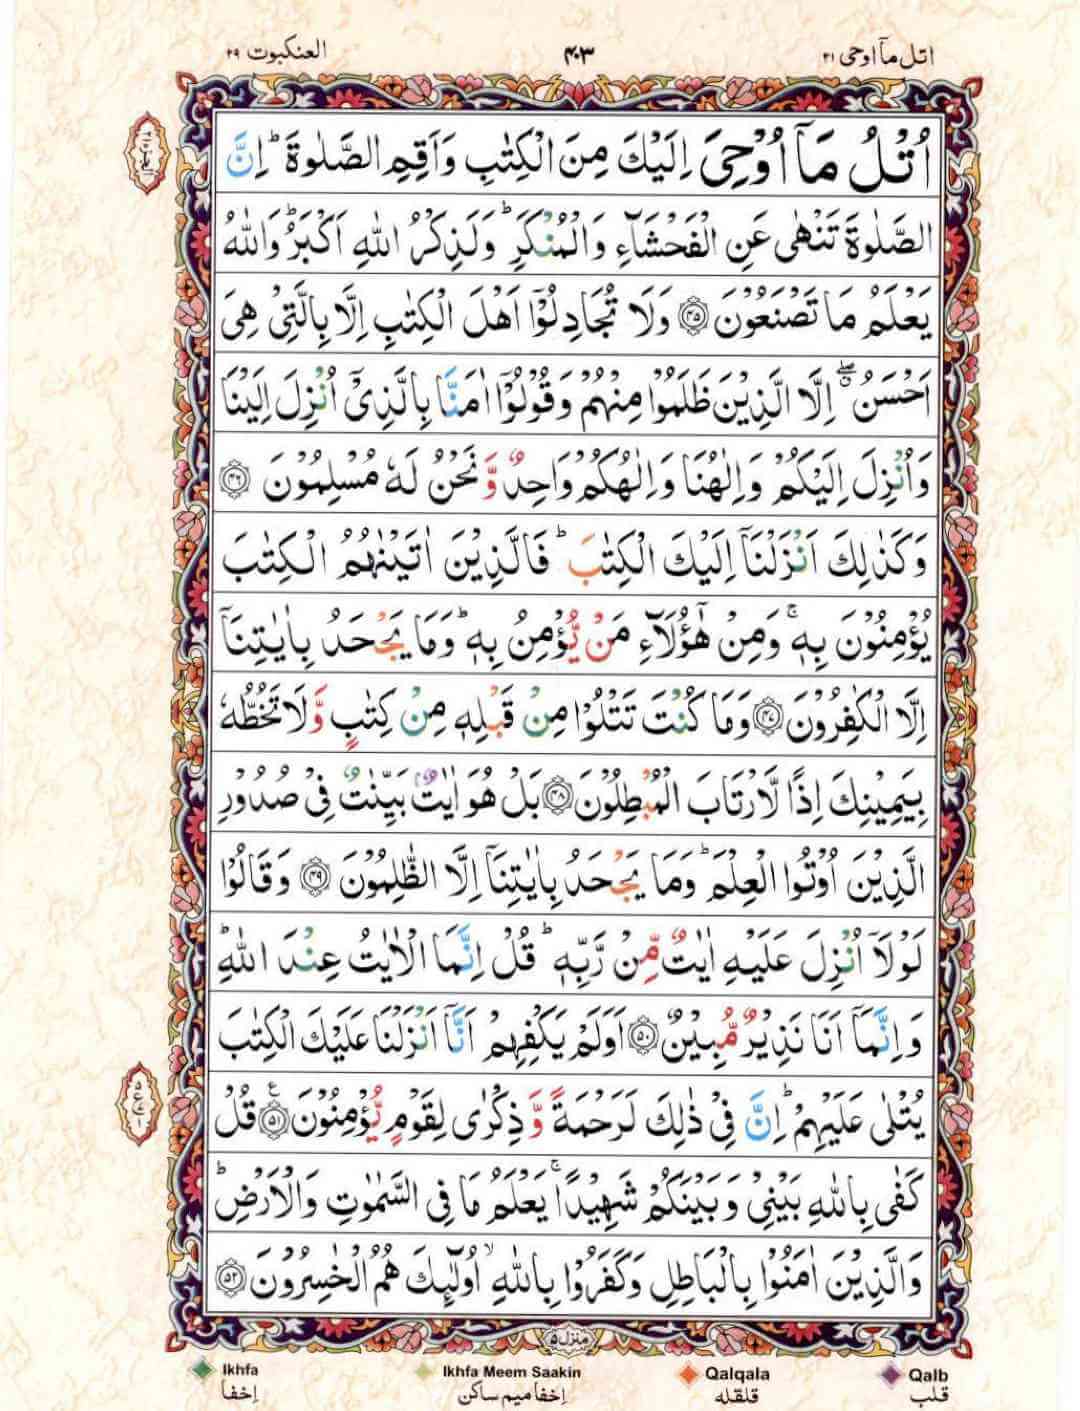 اتل مآ اوحی ۲۱ ۴۰۳ العنکبوت ۲۹
اُتْلُ مَاۤ اُوْحِیَ اِلَیْكَ مِنَ الْكِتٰبِ وَاَقِمِ الصَّلٰوةَ ؕ اِنَّ
الصَّلٰوةَ تَنْهٰی عَنِ الْفَحْشَآءِ وَالْمُنْكَرِ ؕ وَلَذِكْرُ اللّٰهِ اَكْبَرُ ؕ وَاللّٰهُ
یَعْلَمُ مَا تَصْنَعُوْنَ ۝۴۵ وَلَا تُجَادِلُوْۤا اَهْلَ الْكِتٰبِ اِلَّا بِالَّتِیْ هِیَ
اَحْسَنُ ۖۗ اِلَّا الَّذِیْنَ ظَلَمُوْا مِنْهُمْ وَقُوْلُوْۤا اٰمَنَّا بِالَّذِیْۤ اُنْزِلَ اِلَیْنَا
وَاُنْزِلَ اِلَیْكُمْ وَاِلٰهُنَا وَاِلٰهُكُمْ وَاحِدٌ وَّنَحْنُ لَهٗ مُسْلِمُوْنَ ۝۴۶
وَكَذٰلِكَ اَنْزَلْنَاۤ اِلَیْكَ الْكِتٰبَ ؕ فَالَّذِیْنَ اٰتَیْنٰهُمُ الْكِتٰبَ
یُؤْمِنُوْنَ بِهٖ ۚ وَمِنْ هٰۤؤُلَآءِ مَنْ یُّؤْمِنُ بِهٖ ؕ وَمَا یَجْحَدُ بِاٰیٰتِنَاۤ
اِلَّا الْكٰفِرُوْنَ ۝۴۷ وَمَا كُنْتَ تَتْلُوْا مِنْ قَبْلِهٖ مِنْ كِتٰبٍ وَّلَا تَخُطُّهٗ
بِیَمِیْنِكَ اِذًا لَّارْتَابَ الْمُبْطِلُوْنَ ۝۴۸ بَلْ هُوَ اٰیٰتٌۢ بَیِّنٰتٌ فِیْ صُدُوْرِ
الَّذِیْنَ اُوْتُوا الْعِلْمَ ؕ وَمَا یَجْحَدُ بِاٰیٰتِنَاۤ اِلَّا الظّٰلِمُوْنَ ۝۴۹ وَقَالُوْا
لَوْلَاۤ اُنْزِلَ عَلَیْهِ اٰیٰتٌ مِّنْ رَّبِّهٖ ؕ قُلْ اِنَّمَا الْاٰیٰتُ عِنْدَ اللّٰهِ ؕ
وَاِنَّمَاۤ اَنَا نَذِیْرٌ مُّبِیْنٌ ۝۵۰ اَوَلَمْ یَكْفِهِمْ اَنَّاۤ اَنْزَلْنَا عَلَیْكَ الْكِتٰبَ
یُتْلٰی عَلَیْهِمْ ؕ اِنَّ فِیْ ذٰلِكَ لَرَحْمَةً وَّذِكْرٰی لِقَوْمٍ یُّؤْمِنُوْنَ ۝۵۱ ع قُلْ
كَفٰی بِاللّٰهِ بَیْنِیْ وَبَیْنَكُمْ شَهِیْدًا ۚ یَعْلَمُ مَا فِی السَّمٰوٰتِ وَالْاَرْضِ ؕ
وَالَّذِیْنَ اٰمَنُوْا بِالْبَاطِلِ وَكَفَرُوْا بِاللّٰهِ ۙ اُولٰٓئِكَ هُمُ الْخٰسِرُوْنَ ۝۵۲
منزل ۵
Ikhfa Ikhfa Meem Saakin Qalqala Qalb
اِخفا اِخفا میم ساکن قلقله قلب